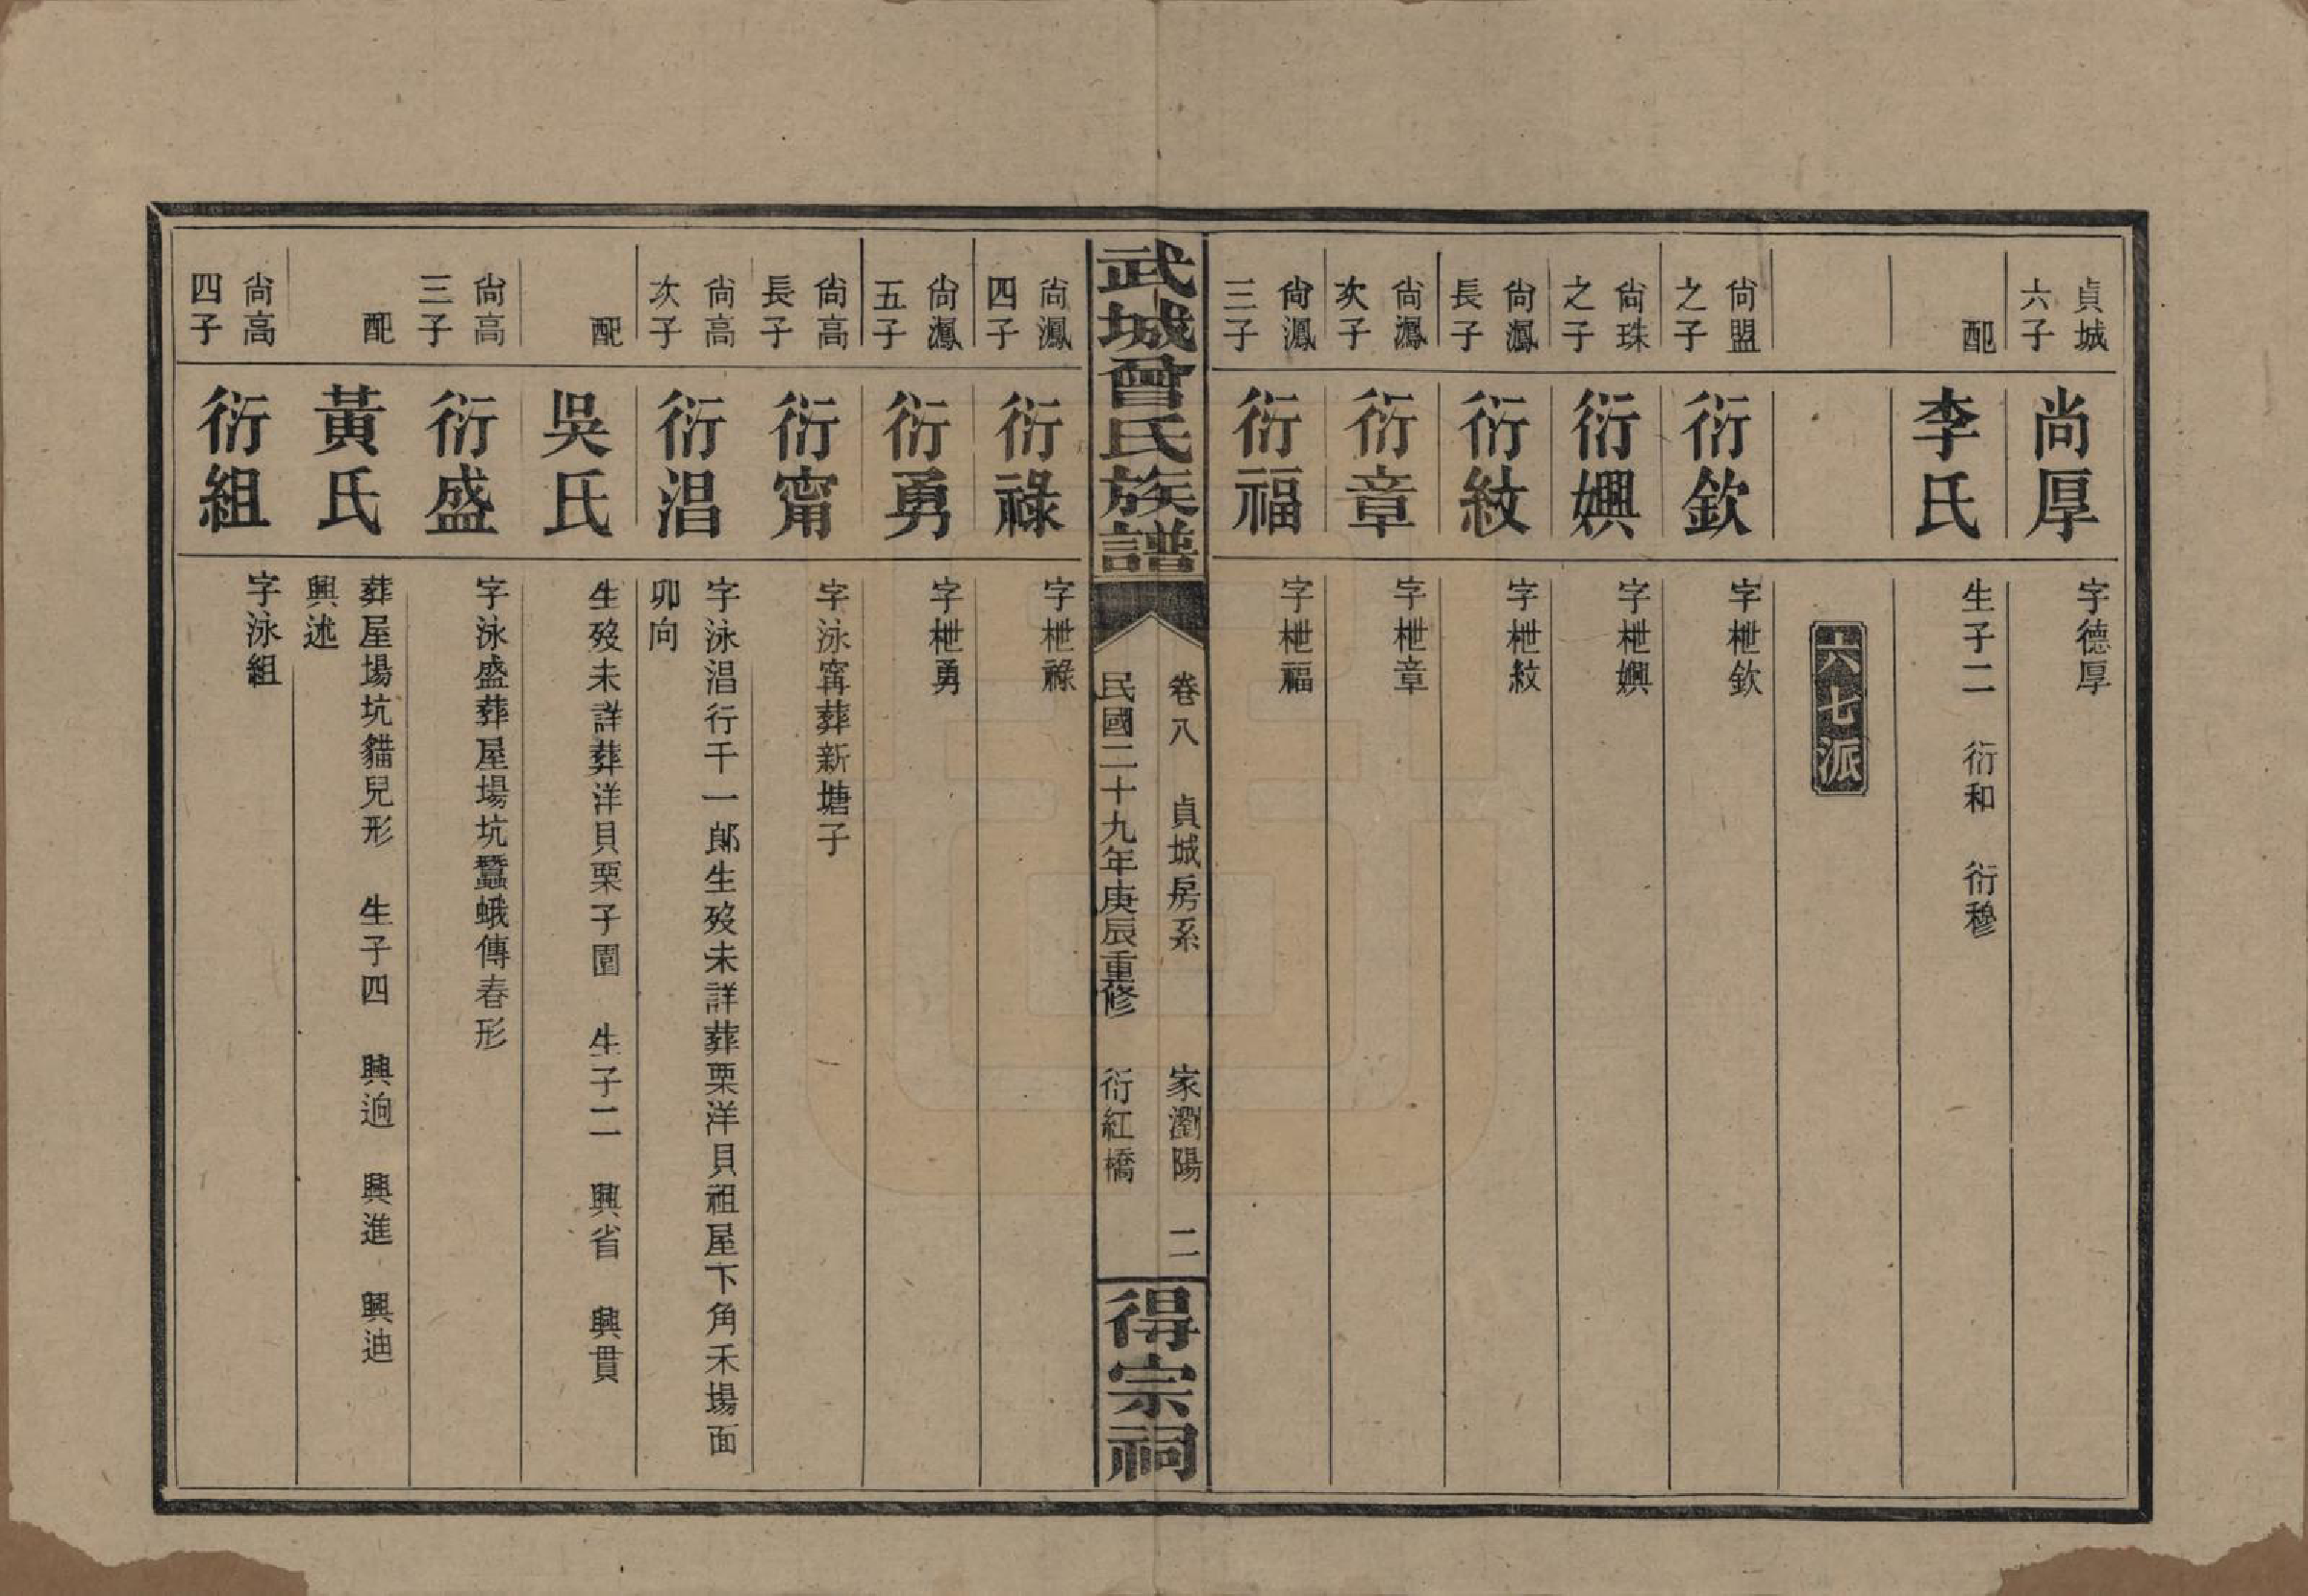 貞城
六子
尚厚
字德厚
配
李氏
生子二 衍和 衍穆
六七派
尙盟
之子
衍欽
字枻欽
尙珠
之子
衍嬩
字枻嬩
尙鳳
長子
衍紋
字枻紋
尙鳳
次子
衍章
字枻章
尙鳳
三子
衍福
字枻福
武城曾氏族譜
卷八 貞城房系 家瀏陽 二
民國二十九年庚辰重修 衍紅橋
得宗祠
尙鳳
四子
衍祿
字枻祿
尙鳳
五子
衍勇
字枻勇
尙高
長子
衍甯
字泳甯葬新塘子
尙高
次子
衍淐
字泳淐行千一郎生歿未詳葬栗洋貝祖屋下角禾場面
卯向
配
吳氏
生歿未詳葬洋貝栗子園 生子二 興省 興貫
尙高
三子
衍盛
字泳盛葬屋場坑蠶蛾傳春形
配
黃氏
葬屋場坑貓兒形 生子四 興逈 興進 興迪
興述
尙高
四子
衍組
字泳組